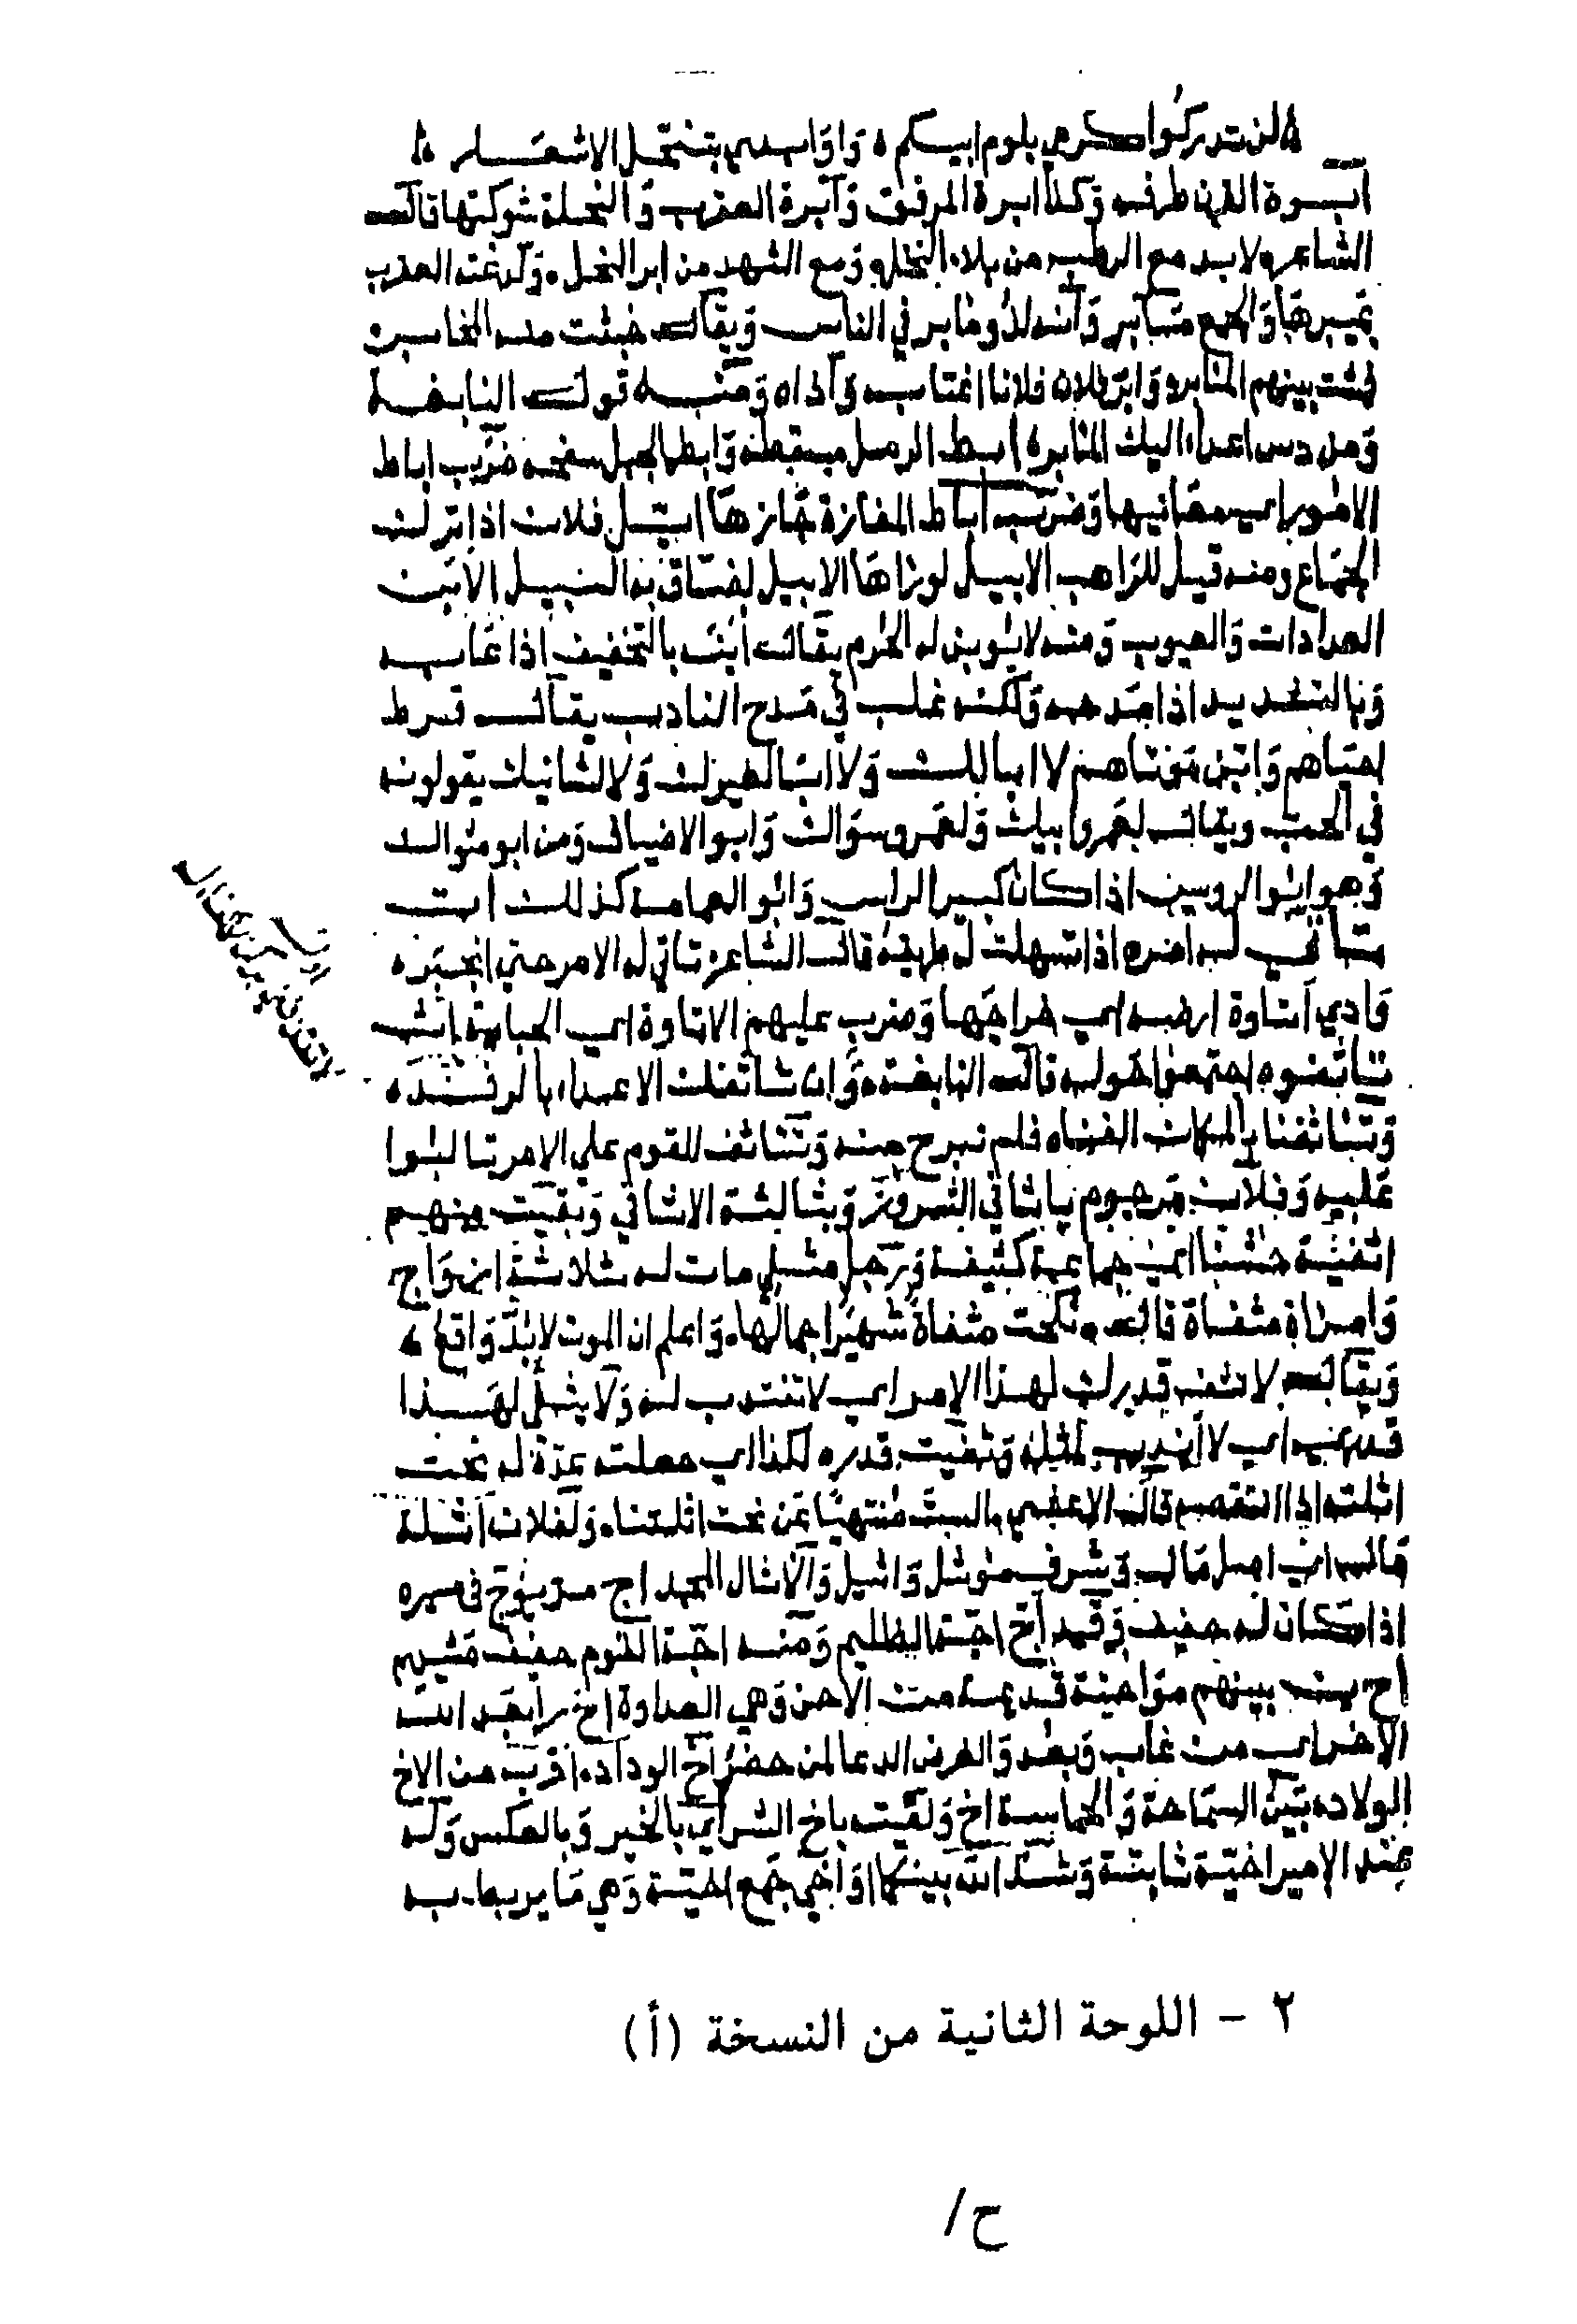 لن تدركوا كرمي بلوم ابيكم وأوابدي بتنحل الاشعار
ابرة القرن طرفه وكذا ابرة المرفق وابرة العقرب والنحلة شوكتها قال
الشاعر ولا بد مع الرطب من بلاء النخل ومع الشهد من ابر النحل ولدغته العقرب
بميبرها والجمع مآبر وانه لذو مآبر في الناس ويقال خبثت منه المخابر
فمشت بينهم المآبر وابر فلان فلانا اغتابه وآذاه ومنه قول النابغة
ومن دس اعداء اليك المآبر ابط الرمل مسقطه وابط الجبل سفحه ضرب اباط
الامور اي مغابنها وضرب اباط المفازة ابل فلان اذا ترك
الجماع ومنه قيل للراهب الابيل لو رآها الابيل لضاق به السبيل الابن
العداوات والعيوب ومنه لا تؤبن له الحرم يقال ابنه بالتخفيف اذا عابه
وبالتشديد اذا مدحه ولكنه غلب في مدح النادب يقال قرط
احياهم وابن موتاهم لا ابا لك ولا ابا لغيرك ولا لشانيك يقولونه
في الحث ويقال لعمرو ابيك وابوا الاضياف ومن ابو مثواك
وهو ابوا الروس اذا كان كبير الراس وابو الهامة كذلك ات
تاتي له امره اذا تسهلت له طريقه قال الشاعر تاتي له الامر حتى انجبر
وادي اتاوة ارضه اي خراجها وضرب عليهم الاتاوة اي الجباية اثف
تاثفوه اجتمعوا حوله قال النابغة وان تاثفك الاعداء بالرفد
وتاثفنا بالمكان الفناه فلم نبرح منه وتاثف القوم على الامر تالبوا
عليه وفلان مرجوم باثافي الشر وبثالثة الاثافي وبقيت منهم
اثفية خشنا اي جماعة كثيفة ورجل مثفى مات له ثلاثة ازواج
وامراة مثفاة قال نكحت مثفاة شهيرا جمالها واعلم ان الموت لا بد واقع
ويقال لا تثف قدرك لهذا الامر اي لا تنتدب له ولا لهذا
قدري اي لا اندب لمثله وثفيت قدره لكذا اي جعلته عدة له نحت
اثلته اذا انتقصه قال الاعشى الست منتهيا عن نحت اثلتنا ولفلان اثلة
مال اي اصل مال وشرف مؤثل واثيل والاثال المجد اج مر يؤج في سيره
اذا كان له حفيف وقد اج اجة الظليم ومنه اجة القوم حفيف مشيهم
اح بينهم مواحنة قديمة من الاحن وهي العداوة اخ ابعد الله
الاخر اي من غاب وبعد والغرض الدعا لمن حضر اخ الوداد اقرب من الاخ
الولاد بين السماحة والحماسة اخ ولقيته باخ الشر اي بالخير وبالعكس وله
عند الامير اخية ثابتة وشد الله بينكما اواخي جمع اخية وهي ما يربط به
٢ - اللوحة الثانية من النسخة (أ)
ح/